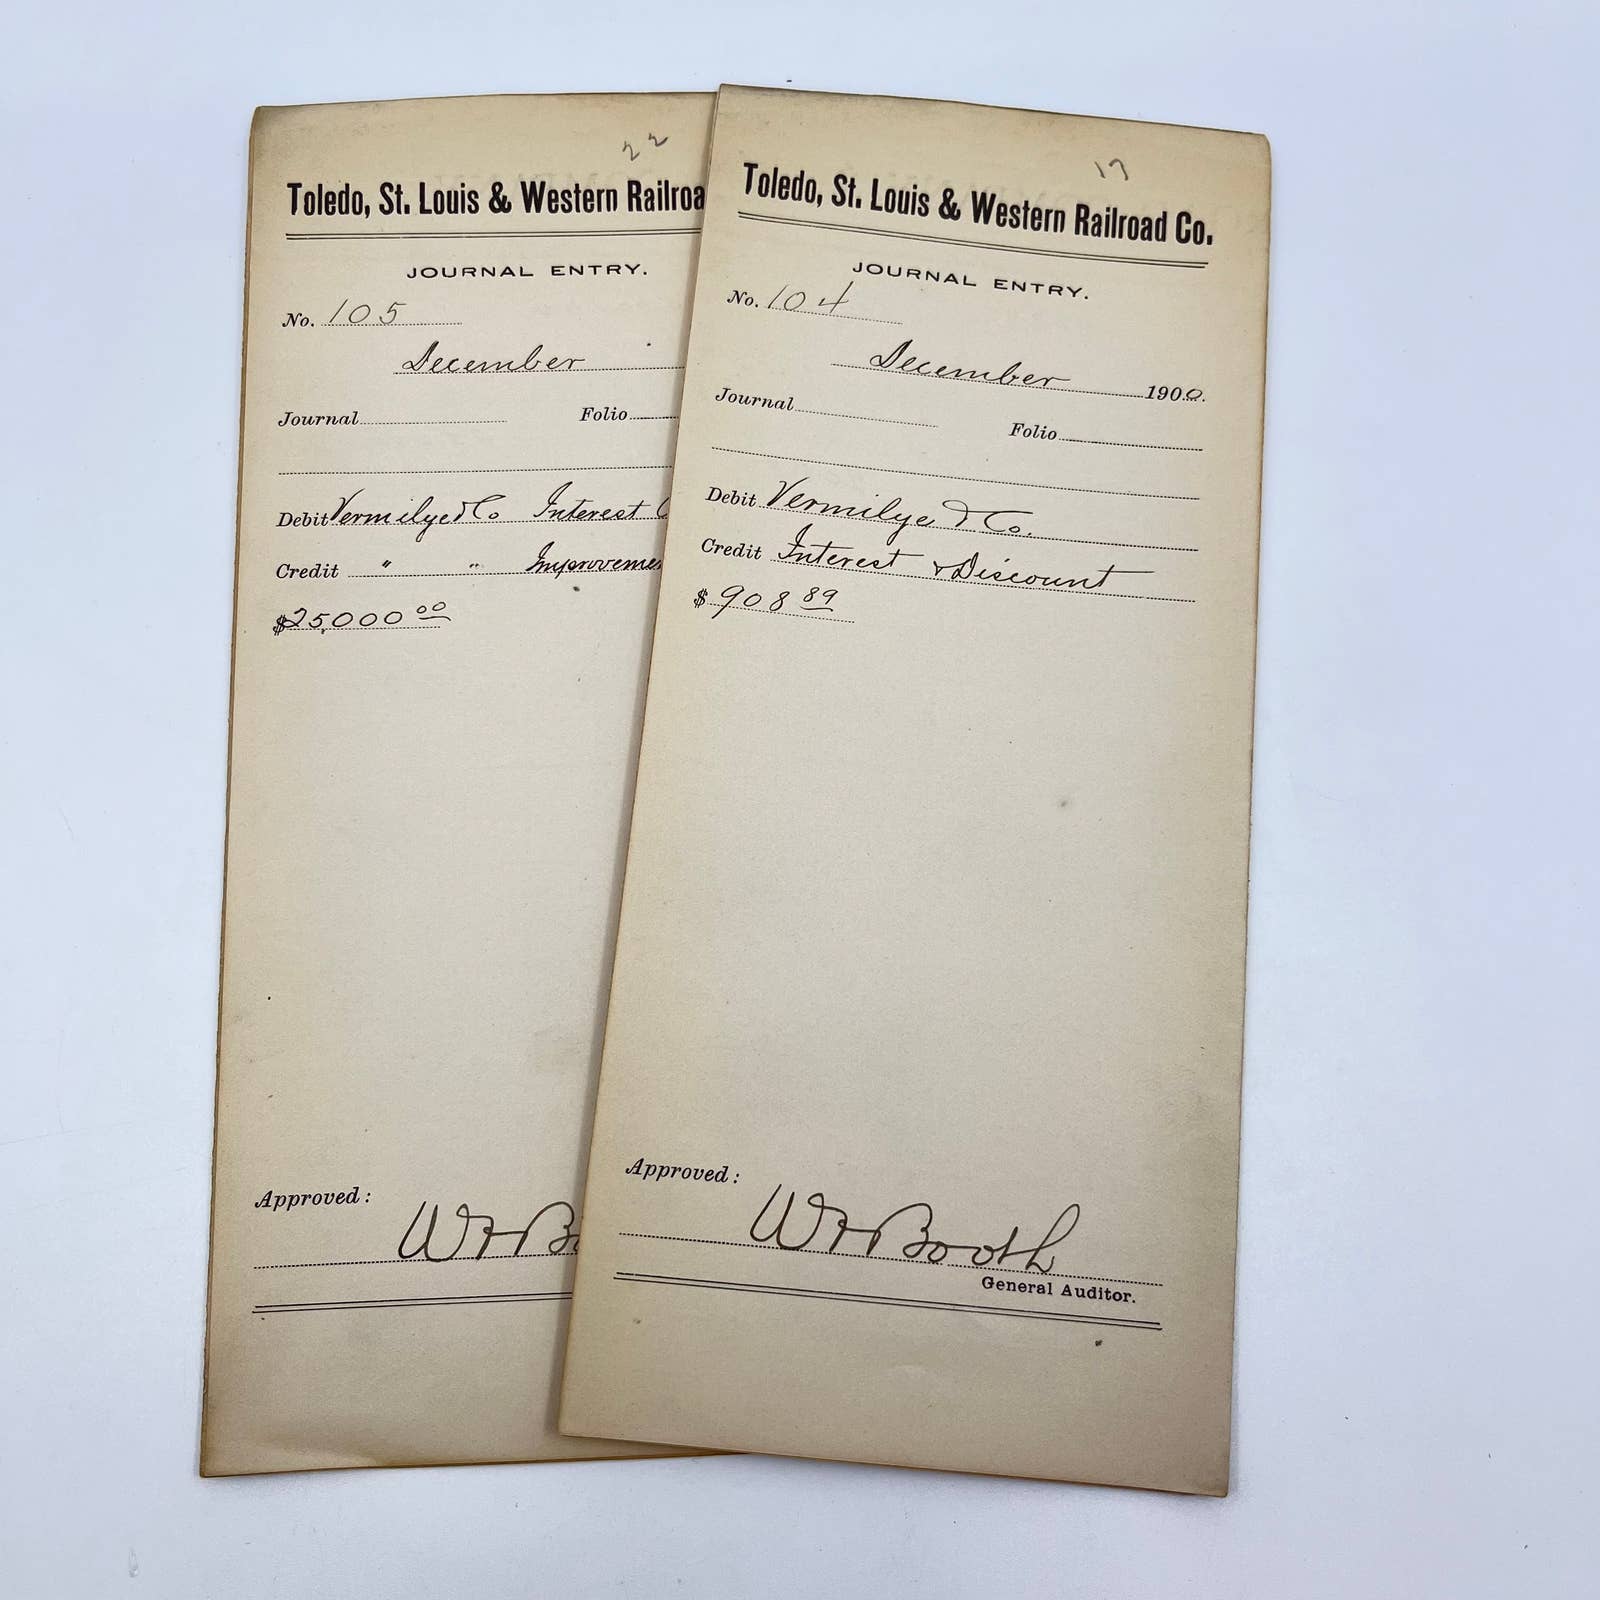 22
Toledo, St. Louis & Western Railroa
JOURNAL ENTRY.
No. 105
December
Journal Folio
Debit Vermilye & Co Interest
Credit " " Improvemen
$25,000 00
Approved:
17
Toledo, St. Louis & Western Railroad Co.
JOURNAL ENTRY.
No. 104
December 1900.
Journal Folio
Debit Vermilye & Co.
Credit Interest & Discount
$ 908 89
Approved:
Booth
General Auditor.